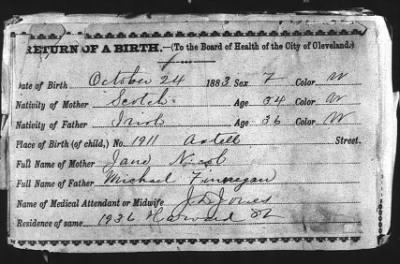 RETURN OF A BIRTH,—(To the Board of Health of the City of Cleveland.)
Date of Birth October 24 1883 Sex F Color W
Nativity of Mother Scotch Age 34 Color W
Nativity of Father Irish Age 36 Color W
Place of Birth (of child,) No. 1911 Street.
Full Name of Mother Jane Nicol
Full Name of Father Michael Finnegan
Name of Medical Attendant or Midwife J D Jones
Residence of same 1936 Harvard St